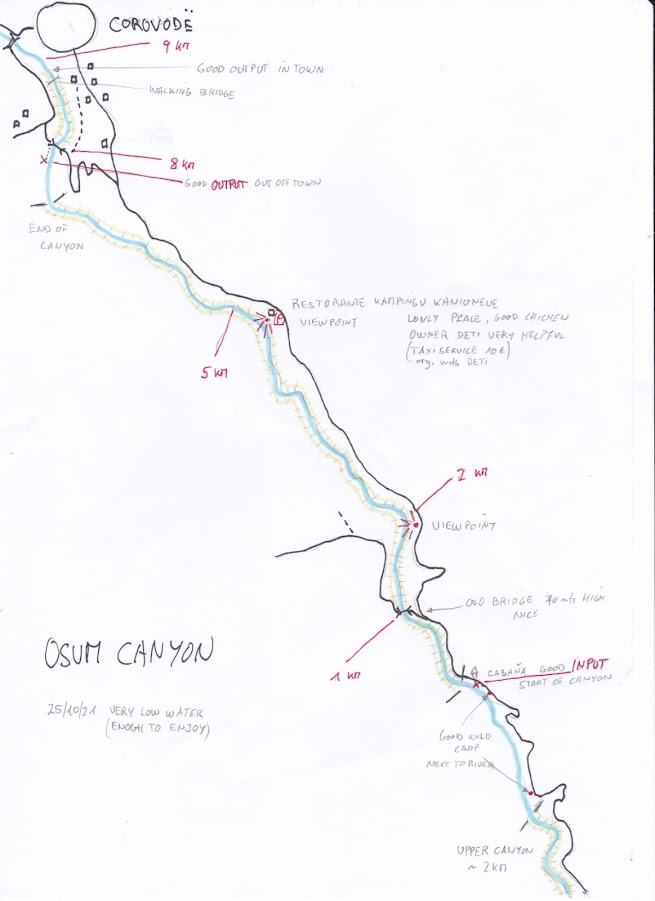 COROVODË
9 KM
GOOD OUTPUT IN TOWN
WALKING BRIDGE
8 KM
GOOD OUTPUT OUT OFF TOWN
END OF
CANYON
RESTORANTE KAMPINGU KANIONEVE
VIEWPOINT
P
LOVLY PLACE, GOOD CHICHEN
OWNER DETI VERY HELPFUL
(TAXI SERVICE 10 €)
org. with DETI
5 KM
2 KM
VIEWPOINT
OLD BRIDGE 30 mts HIGH
NICE
1 KM
CABAÑA GOOD INPUT
START OF CANYON
OSUM CANYON
25/10/21 VERY LOW WATER
(ENOGH TO ENJOY)
GOOD WILD
CAMP
NEXT TO RIVER
UPPER CANYON
~ 2 KM